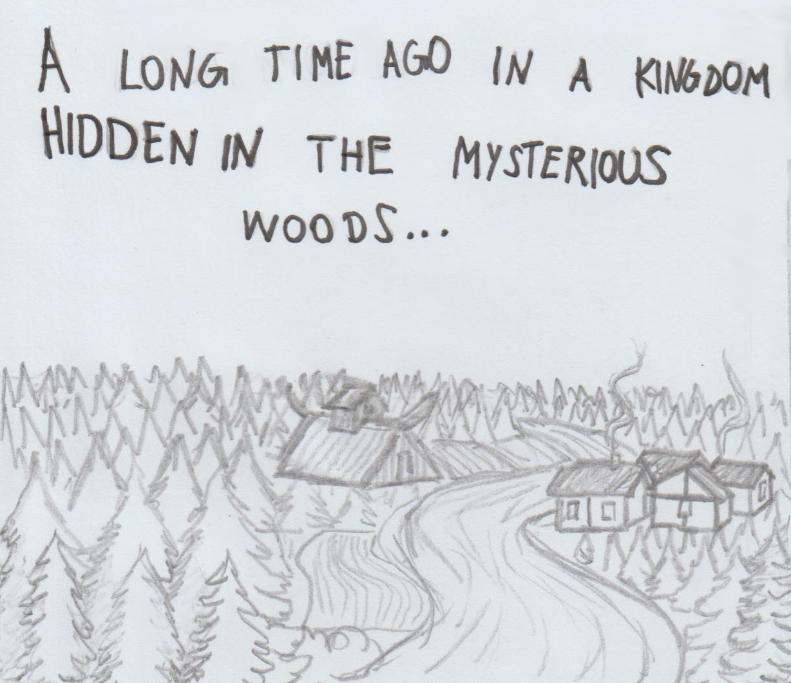 A LONG TIME AGO IN A KINGDOM
HIDDEN IN THE MYSTERIOUS
WOODS...